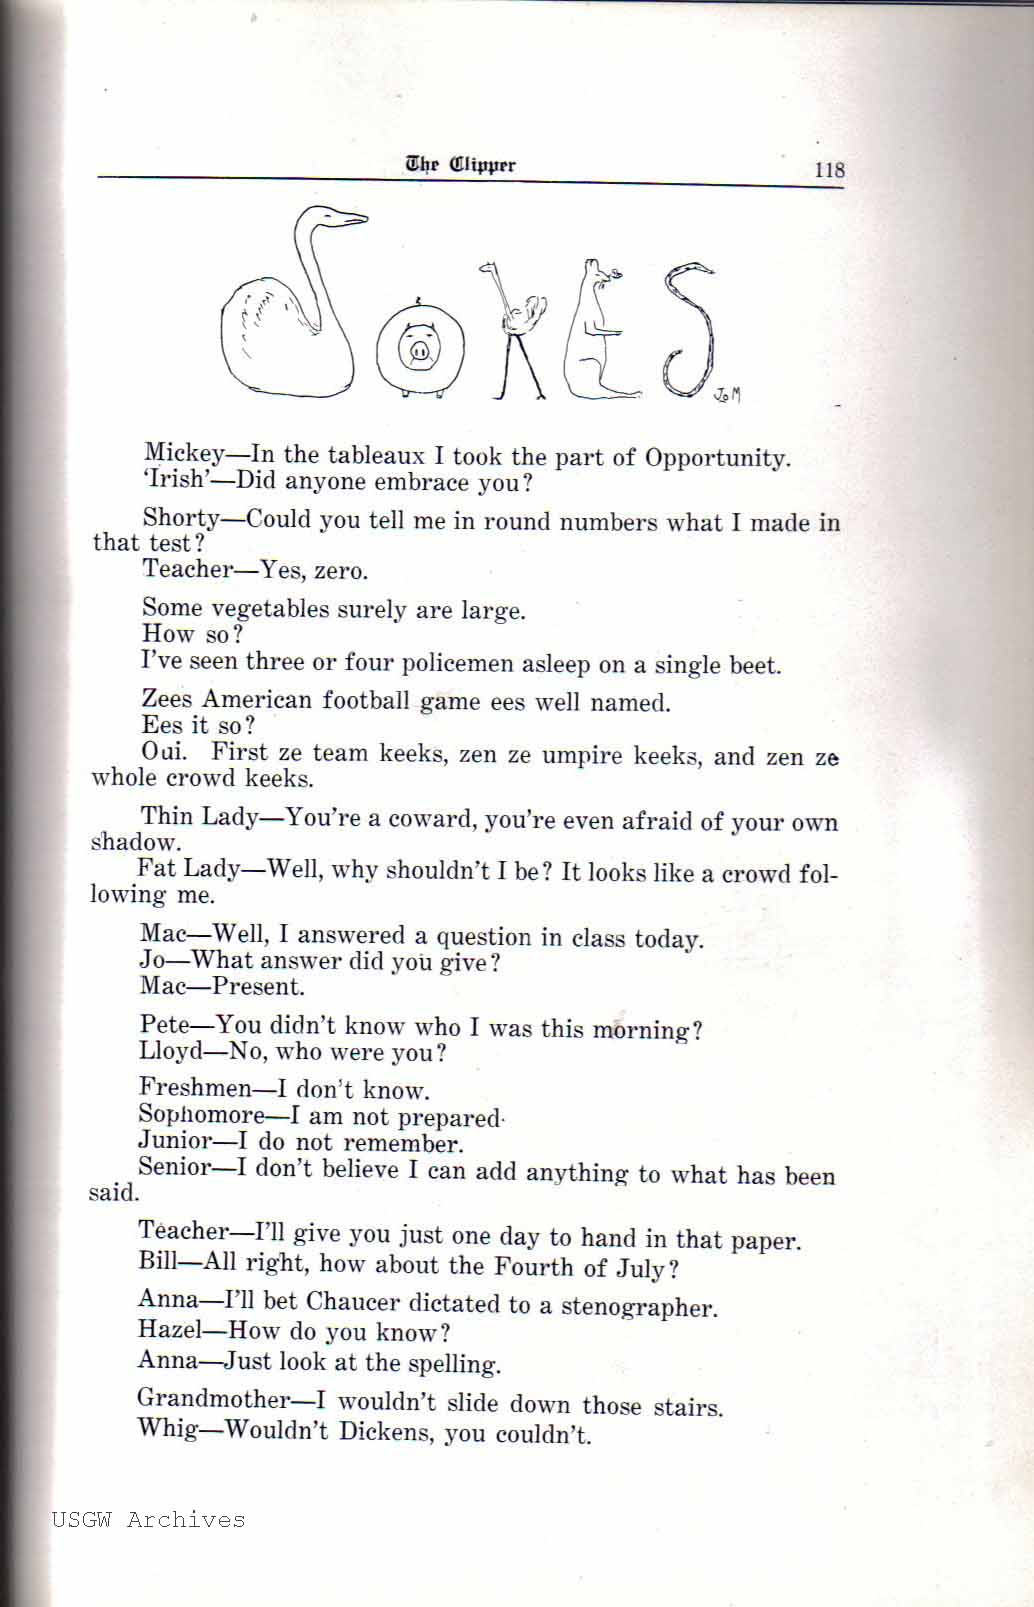 The Clipper 118
JOKES
JoM
Mickey—In the tableaux I took the part of Opportunity.
‘Irish’—Did anyone embrace you?
Shorty—Could you tell me in round numbers what I made in
that test?
Teacher—Yes, zero.
Some vegetables surely are large.
How so?
I’ve seen three or four policemen asleep on a single beet.
Zees American football game ees well named.
Ees it so?
Oui. First ze team keeks, zen ze umpire keeks, and zen ze
whole crowd keeks.
Thin Lady—You’re a coward, you’re even afraid of your own
shadow.
Fat Lady—Well, why shouldn’t I be? It looks like a crowd fol-
lowing me.
Mac—Well, I answered a question in class today.
Jo—What answer did you give?
Mac—Present.
Pete—You didn’t know who I was this morning?
Lloyd—No, who were you?
Freshmen—I don’t know.
Sophomore—I am not prepared.
Junior—I do not remember.
Senior—I don’t believe I can add anything to what has been
said.
Teacher—I’ll give you just one day to hand in that paper.
Bill—All right, how about the Fourth of July?
Anna—I’ll bet Chaucer dictated to a stenographer.
Hazel—How do you know?
Anna—Just look at the spelling.
Grandmother—I wouldn’t slide down those stairs.
Whig—Wouldn’t Dickens, you couldn’t.
USGW Archives